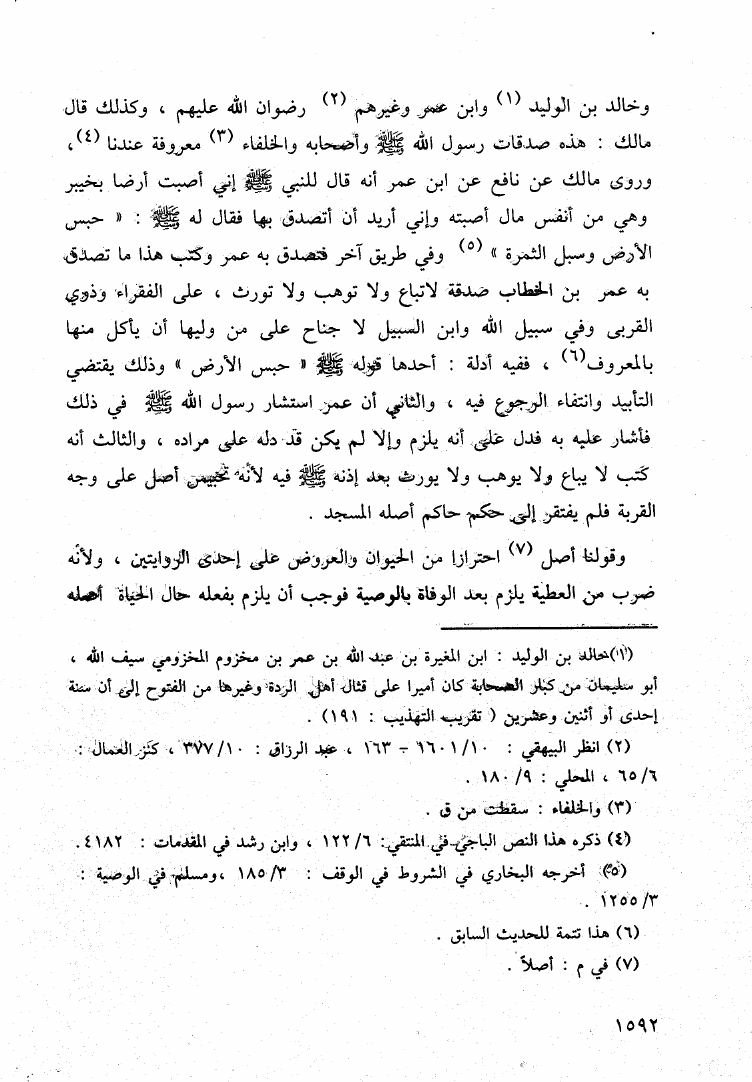 وخالد بن الوليد (١) وابن عمر وغيرهم (٢) رضوان الله عليهم ، وكذلك قال
مالك : هذه صدقات رسول الله ﷺ وأصحابه والخلفاء (٣) معروفة عندنا (٤) ،
وروى مالك عن نافع عن ابن عمر أنه قال للنبي ﷺ إني أصبت أرضا بخيبر
وهي من أنفس مال أصبته وإني أريد أن أتصدق بها فقال له ﷺ : « حبس
الأرض وسبل الثمرة » (٥) وفي طريق آخر فتصدق به عمر وكتب هذا ما تصدق
به عمر بن الخطاب صدقة لاتباع ولا توهب ولا تورث ، على الفقراء وذوي
القربى وفي سبيل الله وابن السبيل لا جناح على من وليها أن يأكل منها
بالمعروف (٦) ، ففيه أدلة : أحدها قوله ﷺ « حبس الأرض » وذلك يقتضي
التأبيد وانتفاء الرجوع فيه ، والثاني أن عمر استشار رسول الله ﷺ في ذلك
فأشار عليه به فدل على أنه يلزم وإلا لم يكن قد دله على مراده ، والثالث أنه
كتب لا يباع ولا يوهب ولا يورث بعد إذنه ﷺ فيه لأنه تحبيس أصل على وجه
القربة فلم يفتقر إلى حكم حاكم أصله المسجد .
وقولنا أصل (٧) احترازا من الحيوان والعروض على إحدى الروايتين ، ولأنه
ضرب من العطية يلزم بعد الوفاة بالوصية فوجب أن يلزم بفعله حال الحياة أصله
(١) خالد بن الوليد : ابن المغيرة بن عبد الله بن عمر بن مخزوم المخزومي سيف الله ،
أبو سليمان من كبار الصحابة كان أميرا على قتال أهل الردة وغيرها من الفتوح إلى أن سنة
إحدى أو أثنين وعشرين ( تقريب التهذيب : ١٩١ ) .
(٢) انظر البيهقي : ١٦٠١/١٠ – ١٦٣ ، عبد الرزاق : ٣٧٧/١٠ ، كنز العمال :
٦٥/٦ ، المحلي : ١٨٠/٩ .
(٣) والخلفاء : سقطت من ق .
(٤) ذكره هذا النص الباجي في المنتقي : ١٢٢/٦ ، وابن رشد في المقدمات : ٤١٨٢ .
(٥) أخرجه البخاري في الشروط في الوقف : ١٨٥/٣ ، ومسلم في الوصية :
١٢٥٥/٣ .
(٦) هذا تتمة للحديث السابق .
(٧) في م : أصلاً .
١٥٩٢